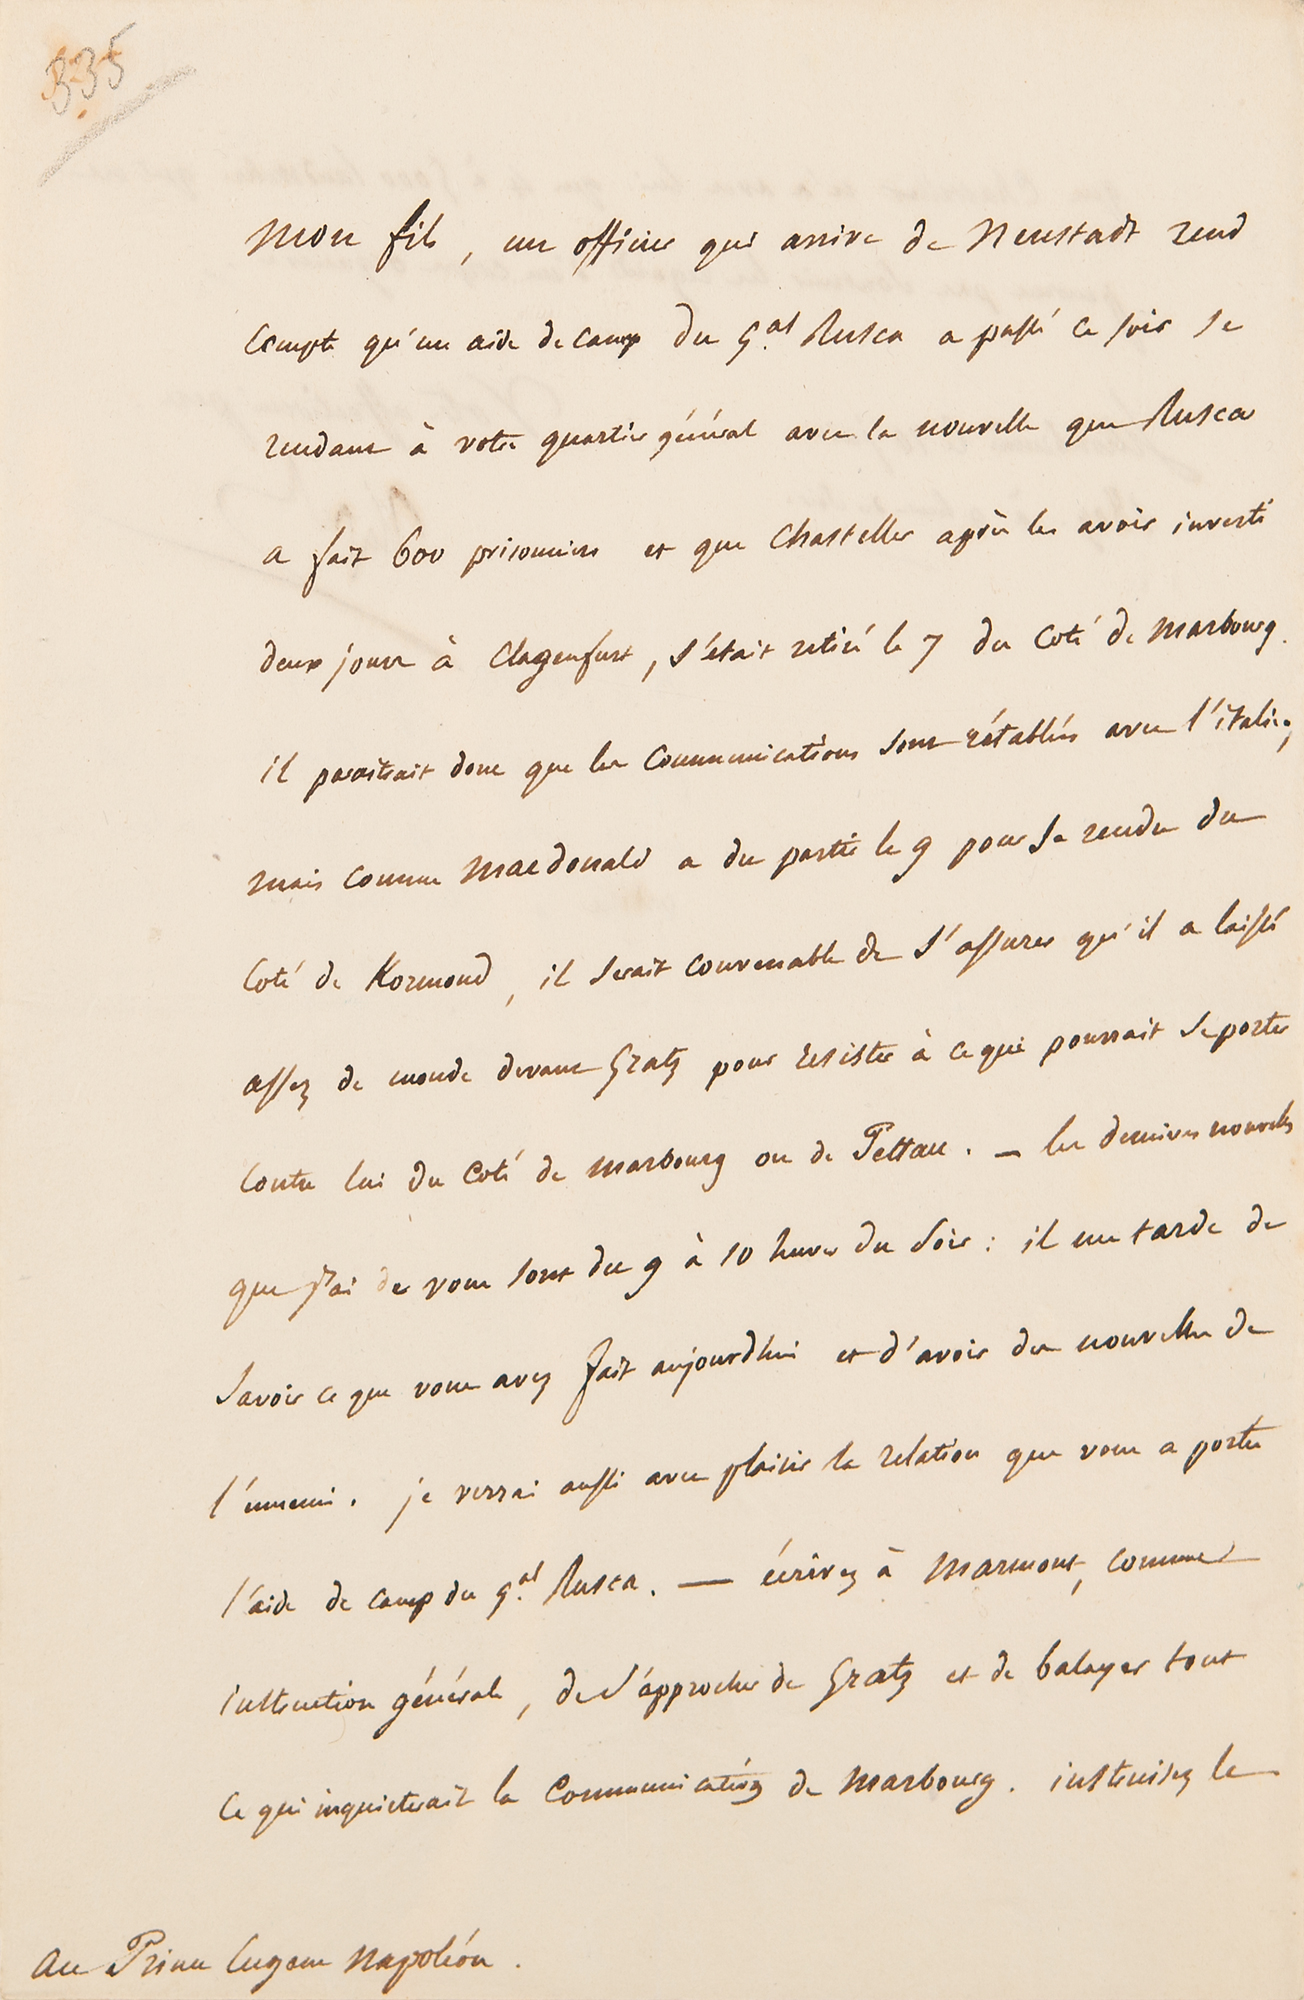 335
Mon fils, un officier qui arrive de Neustadt rend
compte qu'un aide de camp du Gal Rusca a passé ce soir se
rendant à votre quartier général avec la nouvelle que Rusca
a fait 600 prisonniers et que Chasteller après les avoir investi
deux jours à Clagenfurt, s'était retiré le 7 du coté de Marbourg.
il paraitrait donc que les communications sont rétablies avec l'italie,
mais comme Macdonald a du partir le 9 pour se rendre du
coté de Kormond, il serait convenable de s'assurer qu'il a laissé
assez de monde devant Gratz pour resister à ce qui pourrait se porter
contre lui du coté de Marbourg ou de Pettau. — les dernieres nouvelles
que j'ai de vous sont du 9 à 10 heures du soir : il me tarde de
savoir ce que vous avez fait aujourdhui et d'avoir des nouvelles de
l'ennemi. je verrai aussi avec plaisir la relation que vous a portée
l'aide de camp du Gal Rusca. — écrivez à Marmont, comme
instruction générale, de s'approcher de Gratz et de balayer tout
ce qui inquieterait la communication de Marbourg. instruisez le
au Prince Eugene Napoléon.